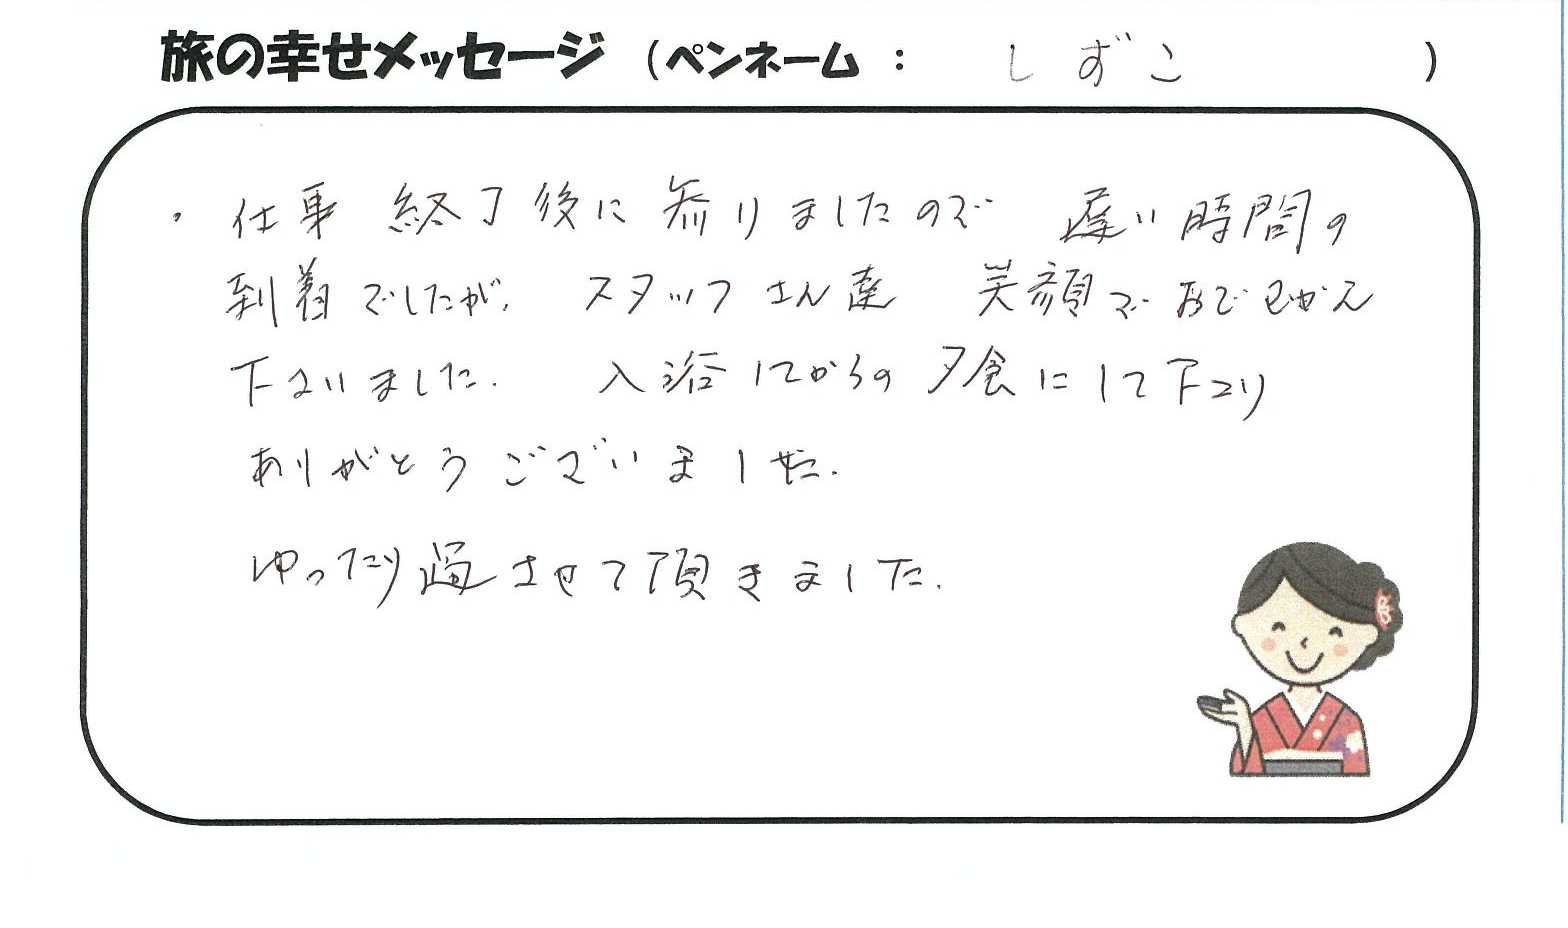 旅の幸せメッセージ (ペンネーム : しずこ )
・仕事 終了後に 参りましたので 遅い時間の
到着でしたが、 スタッフさん達 笑顔で おでむかえ
下さいました. 入浴してからの夕食にして下さり
ありがとうございました.
ゆったり過させて頂きました.